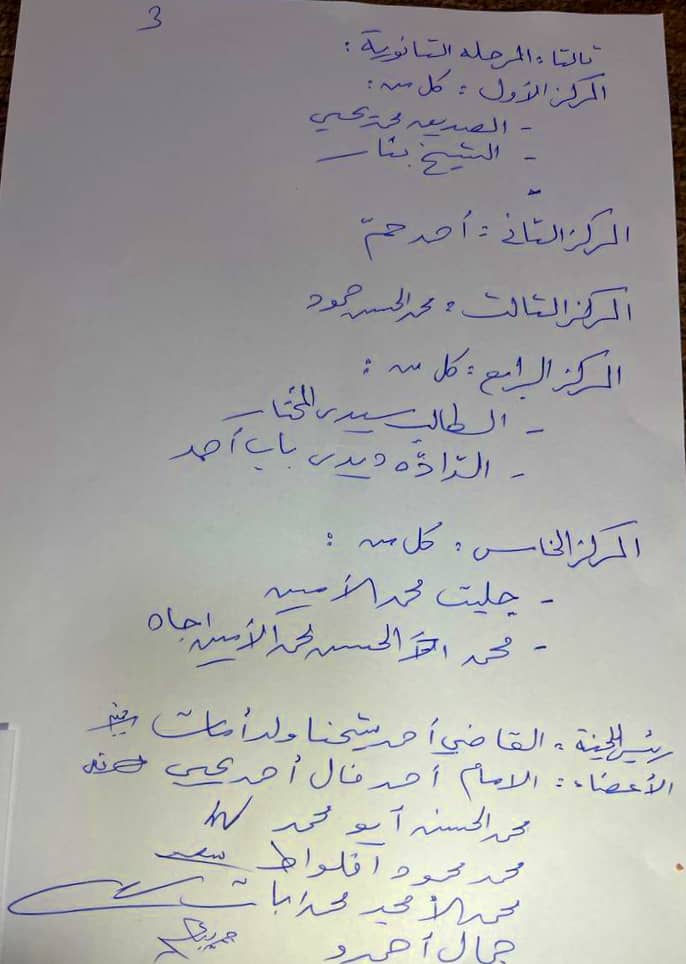 3
ثالثا: المرحله الثانوية:
المركز الأول: كل من:
- الصديق محمد يحيى
- الشيخ بشار
المركز الثاني: أحمد حمّ
المركز الثالث: محمد الحسن حمود
المركز الرابع: كل من:
- الطالب سيدي المختار
- الدّادّه ديدي باب أحمد
المركز الخامس: كل من:
- جليت محمد الأمين
- محمد الحسن محمد الأمين اجاه
رئيس اللجنة: القاضي أحمد شيخنا ولد أمات
الأعضاء: الامام أحمد فال أحمد يحيى
محمد الحسن آبو محمد
محمد محمود افلواط
محمد الأمجد محمد ابات
جمال أحمدو